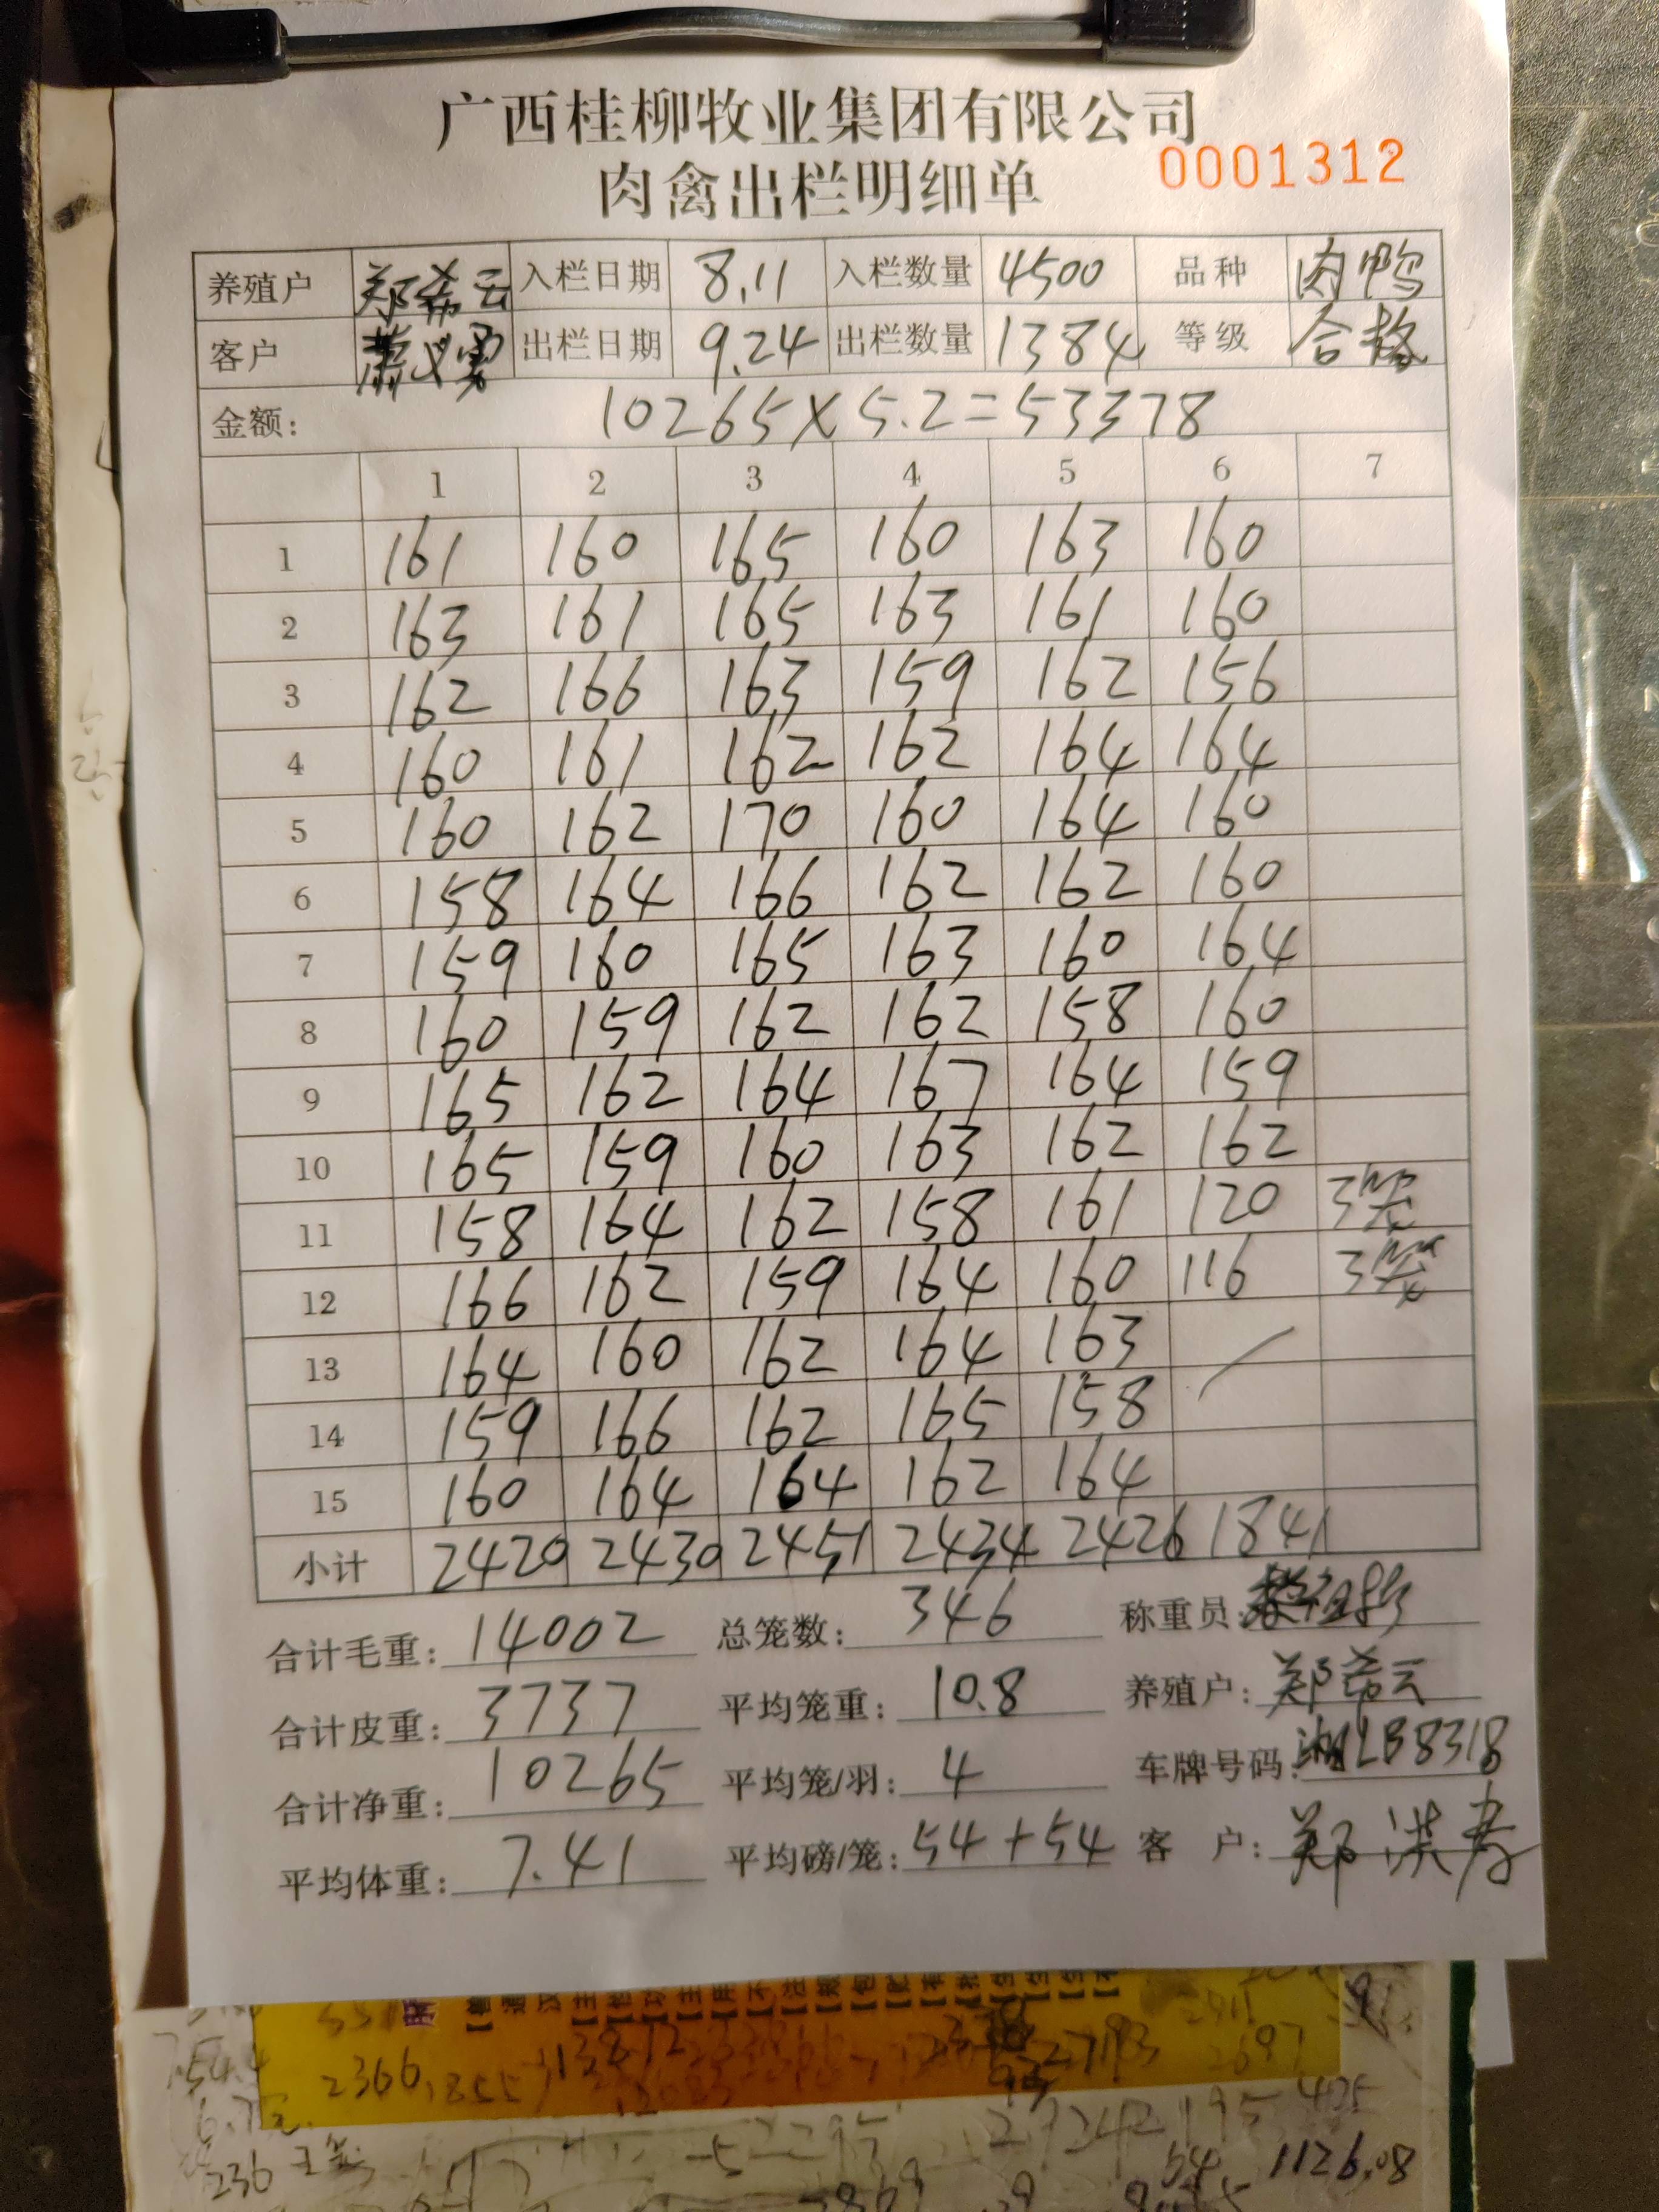 广西桂柳牧业集团有限公司
肉禽出栏明细单 0001312
养殖户 郑希云 入栏日期 8.11 入栏数量 4500 品种 肉鸭
客户 萧义勇 出栏日期 9.24 出栏数量 1384 等级 合格
金额: 10265×5.2=53378
1 2 3 4 5 6 7
1 161 160 165 160 163 160
2 163 161 165 163 161 160
3 162 166 163 159 162 156
4 160 161 162 162 164 164
5 160 162 170 160 164 160
6 158 164 166 162 162 160
7 159 160 165 163 160 164
8 160 159 162 162 158 160
9 165 162 164 167 164 159
10 165 159 160 163 162 162
11 158 164 162 158 161 120 3笼
12 166 162 159 164 160 116 3笼
13 164 160 162 164 163
14 159 166 162 165 158
15 160 164 164 162 164
小计 2420 2430 2451 2434 2426 1841
合计毛重: 14002 总笼数: 346 称重员:
合计皮重: 3737 平均笼重: 10.8 养殖户: 郑希云
合计净重: 10265 平均笼/羽: 4 车牌号码: 湘LB8318
平均体重: 7.41 平均磅/笼: 54+54 客 户: 郑洪寿
2366 1855
236 1126.08